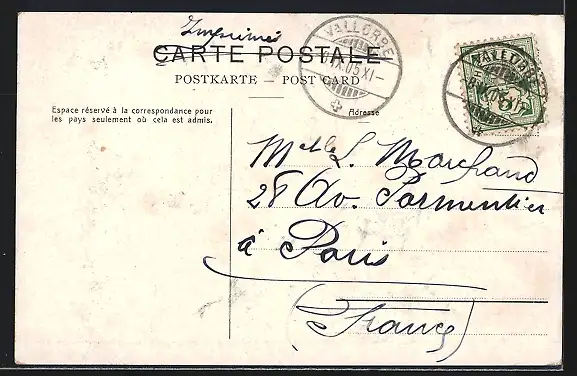 Imprimé
CARTE POSTALE
POSTKARTE — POST CARD
VALLORBE
IX.05.XI-
Espace réservé à la correspondance pour
les pays seulement où cela est admis.
Adresse
VALLORBE
Melle L. Marchand
28 Av. Parmentier
à Paris
(France)